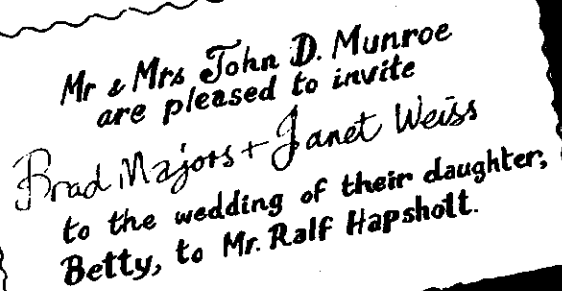 Mr & Mrs John D. Munroe
are pleased to invite
Brad Majors + Janet Weiss
to the wedding of their daughter,
Betty, to Mr. Ralf Hapshott.